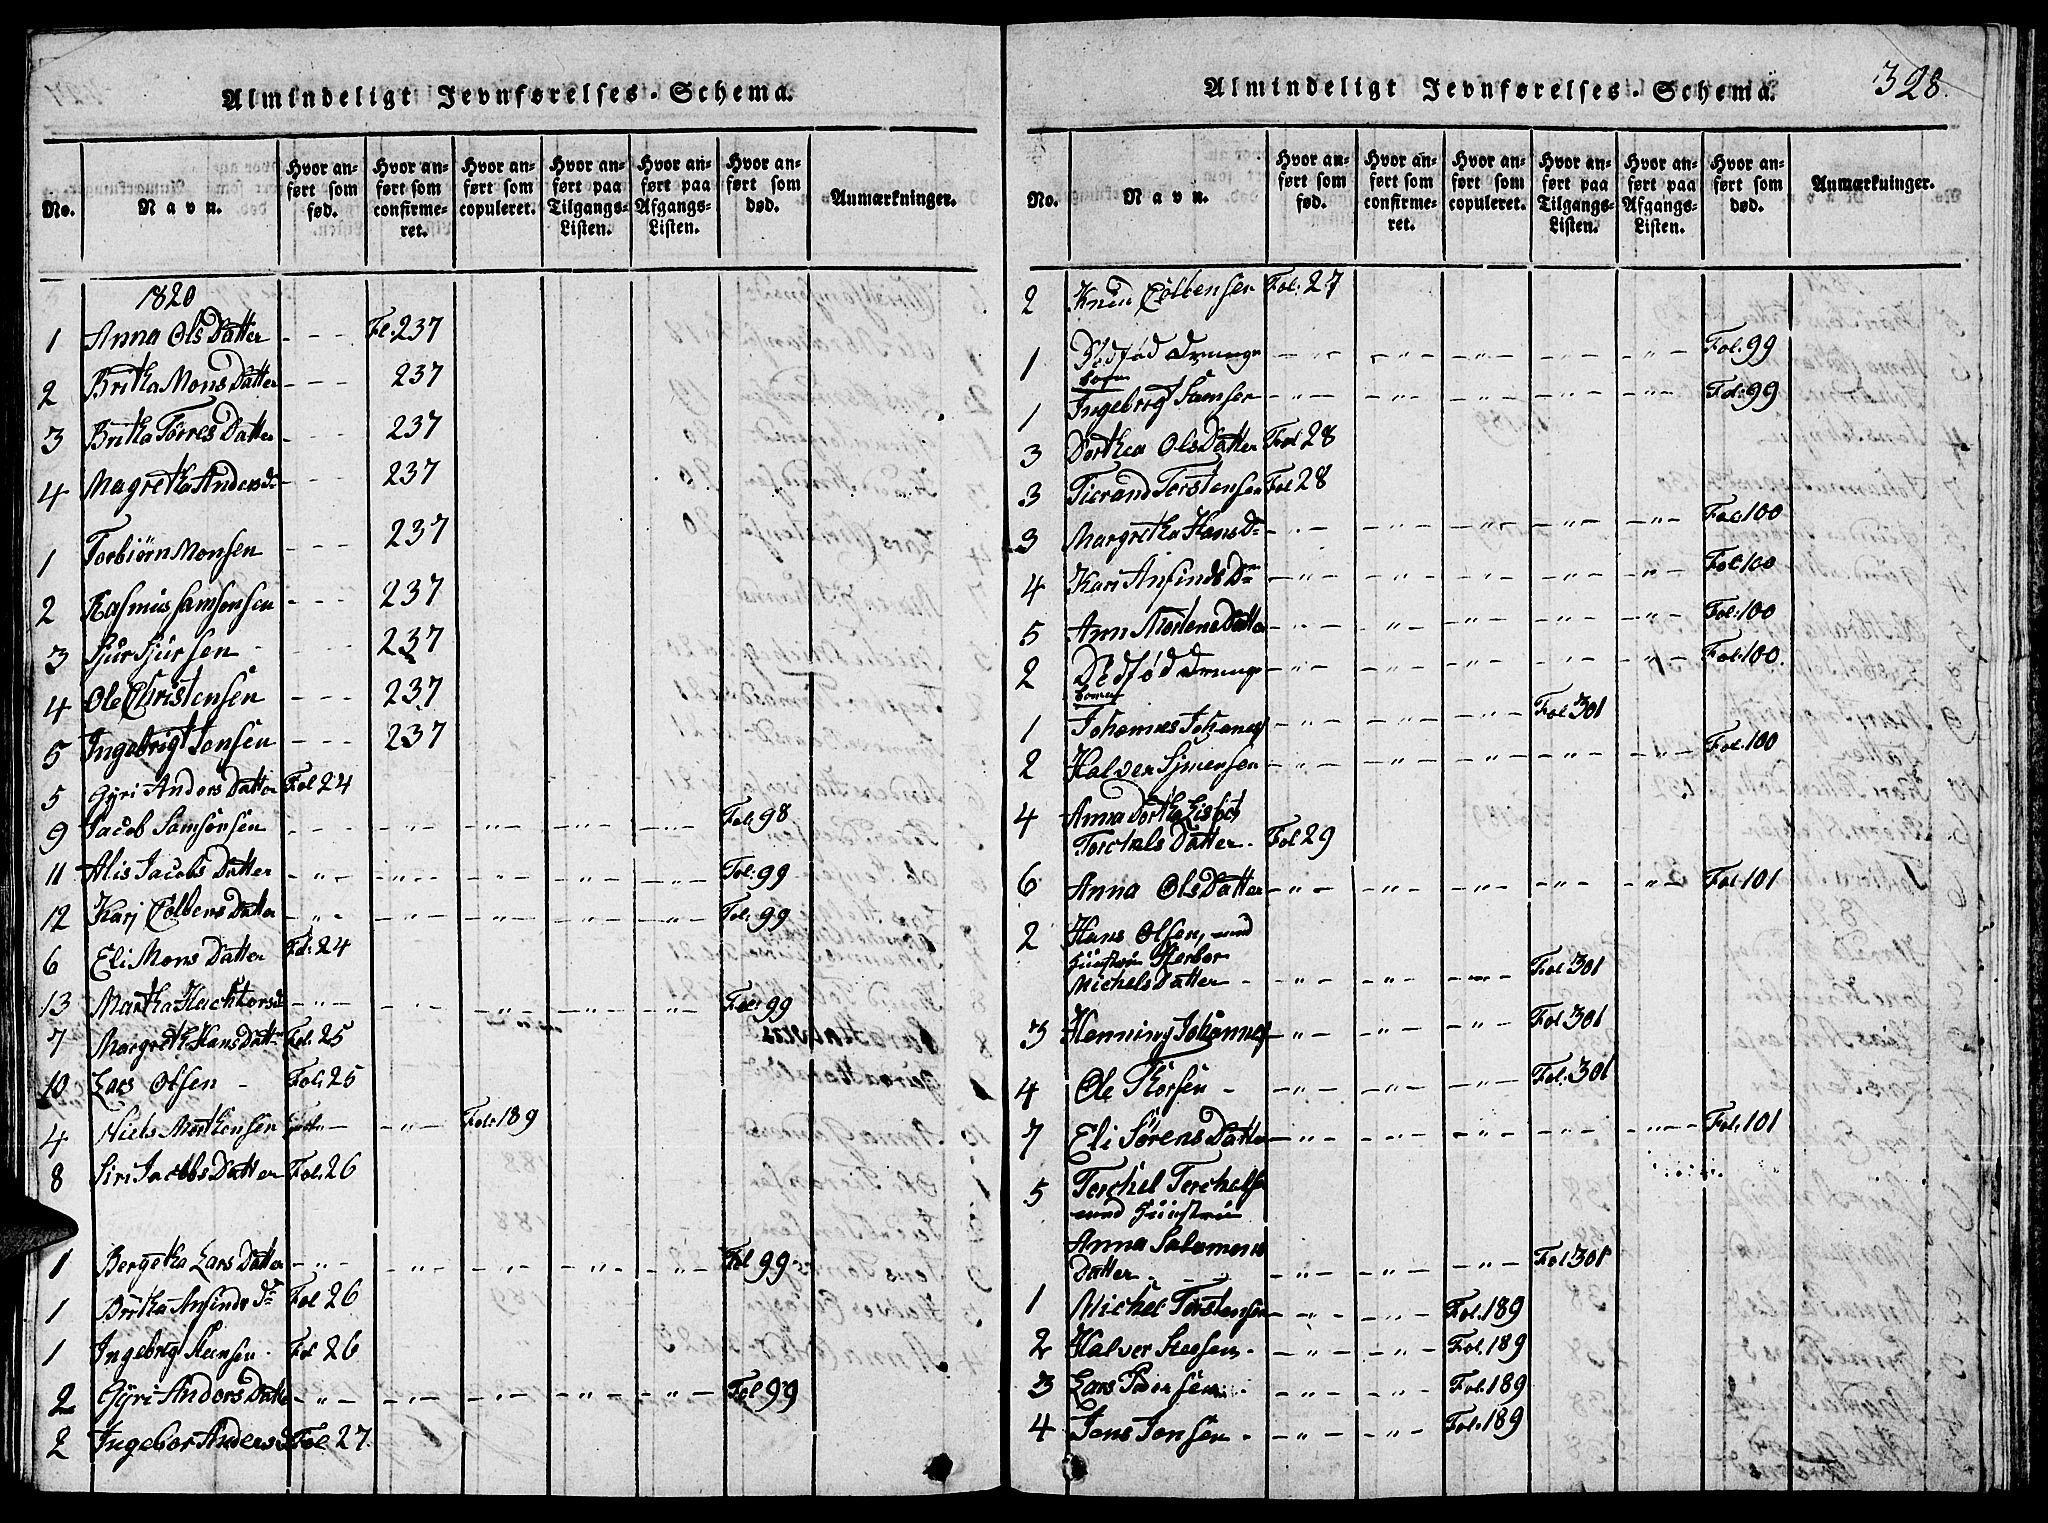 Almindeligt Jevnførelses-Schema.
No.
Navn.
Hvor anført som fød.
Hvor anført som confirmeret.
Hvor anført som copuleret.
Hvor anført paa Tilgangs-Listen.
Hvor anført paa Afgangs-Listen.
Hvor anført som død.
Anmærkninger.
1820
1 Anna Ols Datter - - - Fol: 237
2 Britha Mons Datter - - - 237
3 Britha Torres Datter - - - 237
4 Magretha Anders D. - - - 237
1 Torbiørn Monsen - - - 237
2 Rasmus Samsonsen - - - 237
3 Sjur Sjursen - 237
4 Ole Christensen - - - 237
5 Ingebrigt Jonsen - - - 237
5 Gÿri Anders Datter Fol 24
9 Jacob Samsonsen - - „ - - „ - - „ - - „ - Fol: 98
11 Alis Jacobs Datter - „ - - „ - - „ - - „ - - „ - Fol: 99
12 Karj Colbens Datter - „ - - „ - - „ - - „ - - „ - Fol: 99
6 Eli Mons Datter Fol: 24
13 Martha Hachtorsd - „ - - „ - - „ - - „ - - „ - Fol: 99
7 Margreth Hans Datt Fol: 25
10 Lars Olsen - Fol: 25
4 Niels Monsen - „ - Fol: 189
8 Siri Jacobs Datter Fol: 26
1 Bergetha Lars Datter - „ - - „ - - „ - - „ - - „ - Fol 99
1 Britha Anfinds Dr Fol 26
1 Ingebrigt Steensen - Fol 26
2 Gÿri Anders Datter - „ - - „ - - „ - - „ - - „ - Fol 99
2 Ingebor Anders D Fol 27.
Almindeligt Jevnførelses-Schema.
328.
No.
Navn.
Hvor anført som fød.
Hvor anført som confirmeret.
Hvor anført som copuleret.
Hvor anført paa Tilgangs-Listen.
Hvor anført paa Afgangs-Listen.
Hvor anført som død.
Anmærkninger.
2 Knud Colbensen Fol: 27
1 Dødfød Drenge - „ - - „ - - „ - - „ - - „ - Fol. 99
barn
1 Ingebrigt Samsen - „ - - „ - - „ - - „ - - „ - Fol: 99
3 Dorthea Ols Datter Fol 28
3 Tierand Torstensen Fol 28
3 Margretha Hans D - „ - - „ - - „ - - „ - - „ - Fol: 100
4 Kari Anfinds Dr - „ - - „ - - „ - - „ - - „ - Fol: 100
5 Ann Mortens Datter - „ - - „ - - „ - - „ - - „ - Fol: 100
2 Dødfød Drenge - „ - - „ - - „ - - „ - - „ - Fol: 100.
barn
1 Johannes Johannes - „ - - „ - - „ - Fol 301
2 Halver Simensen - „ - - „ - - „ - - „ - - „ - Fol: 100
4 Anna Dortha Lisbet
Torchels Datter. Fol 29
6 Anna Ols Datter - „ - - „ - - „ - - „ - - „ - Fol: 101
2 Hans Olsen, med
Huustru Herbor
Michels Datter - - „ - - „ - - „ - Fol 301
3 Henning Johannes - „ - - „ - - „ - Fol 301
4 Ole Thorsen - - „ - - „ - - „ - Fol. 301
7 Eli Sørens Datter - „ - - „ - - „ - - „ - - „ - Fol. 101
5 Torchel Torchels
med Huustru
Anna Salamons
Datter - - - „ - - „ - - „ - Fol 301
1 Michel Torstensen - „ - - „ - Fol. 189
2 Halver Steesen - - „ - - „ - Fol. 189
3 Lars Peersen - - „ - - „ - Fol. 189
4 Jons Jonsen - - „ - - „ - Fol. 189